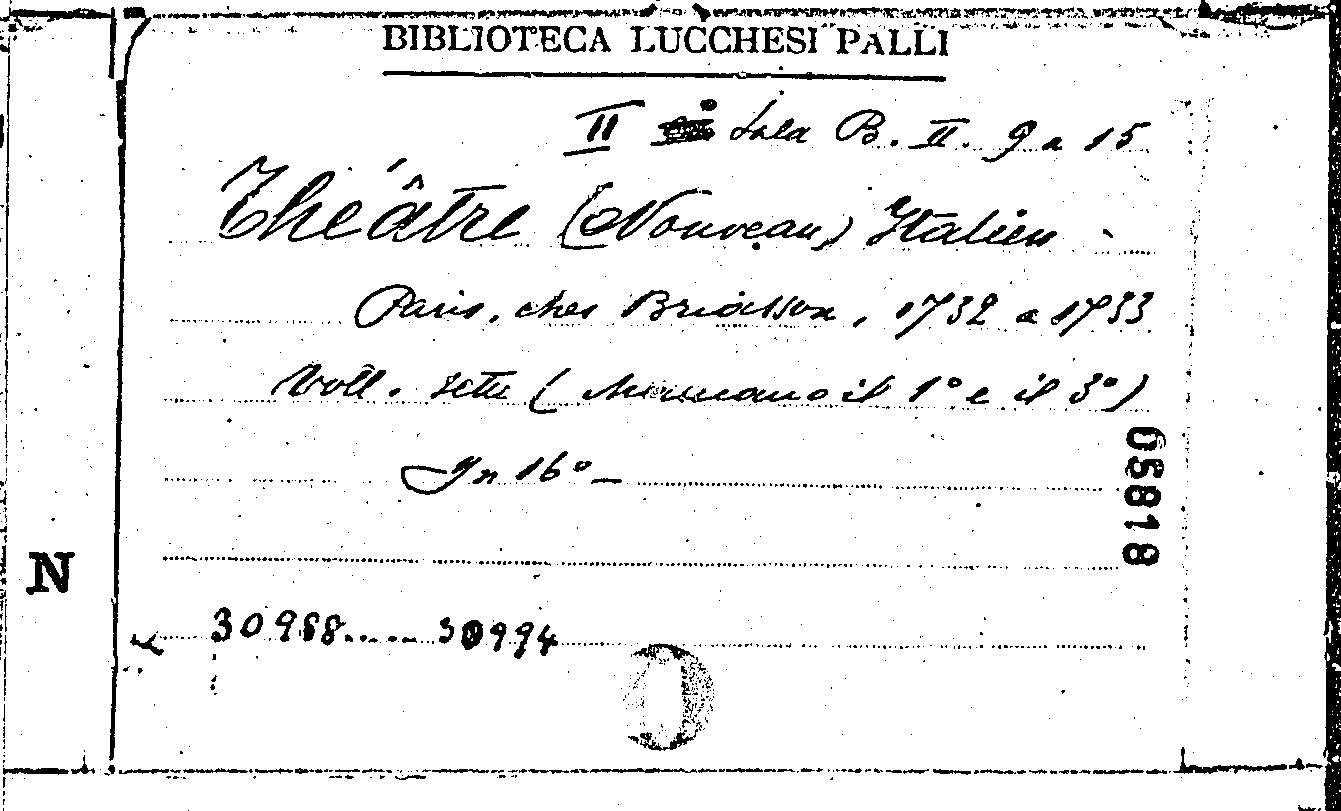 BIBLIOTECA LUCCHESI PALLI
II Sala B. II. 9 a 15
Théâtre (Nouveau) Italien
Paris, chez Briasson, 1732 a 1733
Voll. sette (Mancano il 1° e il 3°)
In 16° —
05818
N
30988..... 30994